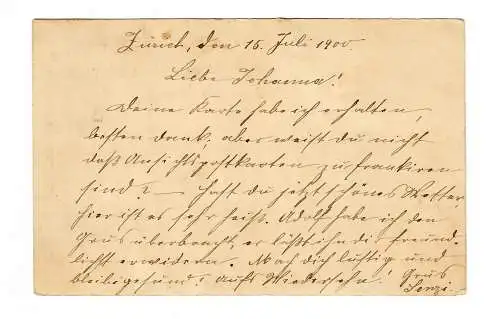 Zürich, den 15. Juli 1900.
Liebe Johanna!
Deine Karte habe ich erhalten,
besten dank, aber weist du nicht
daß Ansichtspostkarten zu frankiren
sind? — hast du jetzt schönes Wetter,
hier ist es sehr heiß. Adolf habe ich den
Grus überbracht, er läßt ihn dir freund-
lichst erwidern. Mach dich lustig und
bleib gesund! Aufs Wiedersehn! Grus
Senzi.